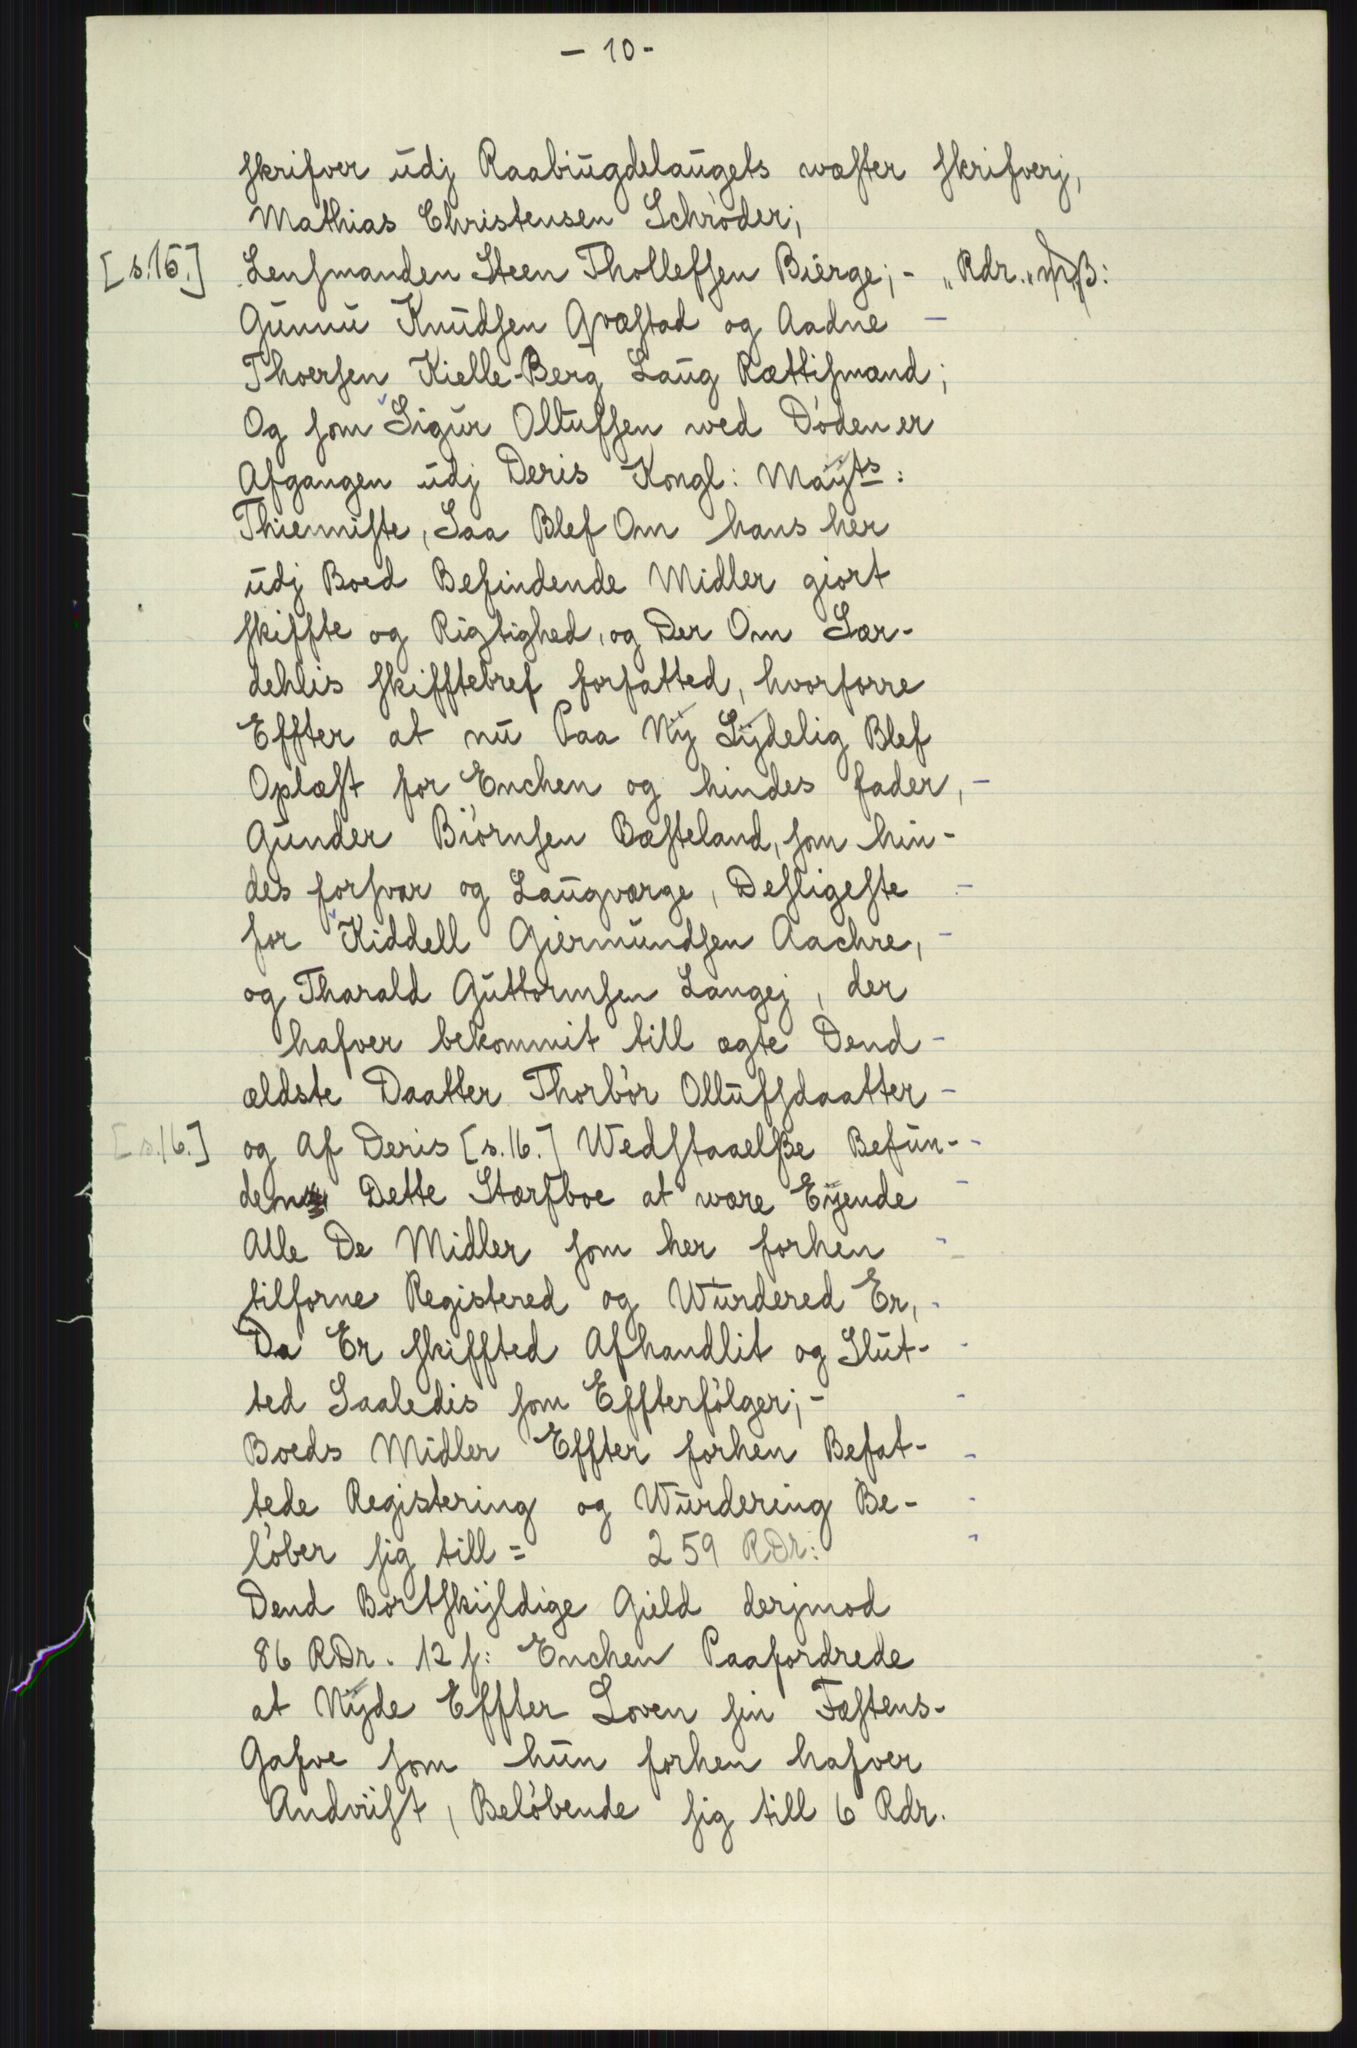 - 10 -
skrifver udj Raabiugdelaugets wæster skrifverj,
Mathias Christensen Schröder;
[s.15.] Lensmanden Steen Thollefsen Bierge; - „ Rdr. „
Gunnu Knudsen Qvæstad og Aadne -
Thoersen Kielle-Berg Laug Rættismænd;
Og som Sigur Ollufsen wed Döden er
Afgangen udj Deris Kongl: Mayts:
Thienniste, Saa Blef Om hans her
udj Boed Befindende Midler giort
skiffte og Rigtighed, og Der Om Sær-
dehlis skifftebref forfatted, hvorforre
Effter at nu Paa Ny Lydelig Blef
Oplæst for Enchen og hindes fader, -
Gunder Biörnsen Bæsteland, som hin-
des forsvar og Laugværge, Desligeste -
for Kiddell Giermundsen Aachre, -
og Tharald Guttormsen Langej, der
hafver bekommit till ægte Dend -
ældste Daatter Thorbör Ollufsdaatter -
[s.16.] og Af Deris [s.16.] Wedstaaelße Befun- -
den Dette Stærfboe at være Eyende -
Alle De Midler som her forhen -
tilforne Registered og Wurdered Er, -
Da Er skiffted Afhandlit og Slut- -
ted Saaledis som Effterfölger; - -
Boeds Midler Effter forhen Befat- -
tede Registering og Wurdering Be- -
löber sig till = 259 RDr: -
Dend Bortskyldige Gield derjmod
86 RDr. 12 s: Enchen Paafordrede
at Nyde Effter Loven sin Fæstens-
Gafve som hun forhen hafver
Andviist, Belöbende sig till 6 Rdr.